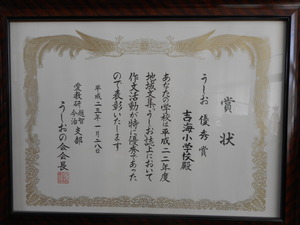 賞状
うしお 優秀賞
吉海小学校殿
あなたの学校は平成二二年度
地域文集うしお誌上において
作文活動が特に優秀であった
ので表彰いたします
平成二三年一月二八日
愛教研越智今治支部
うしおの会会長